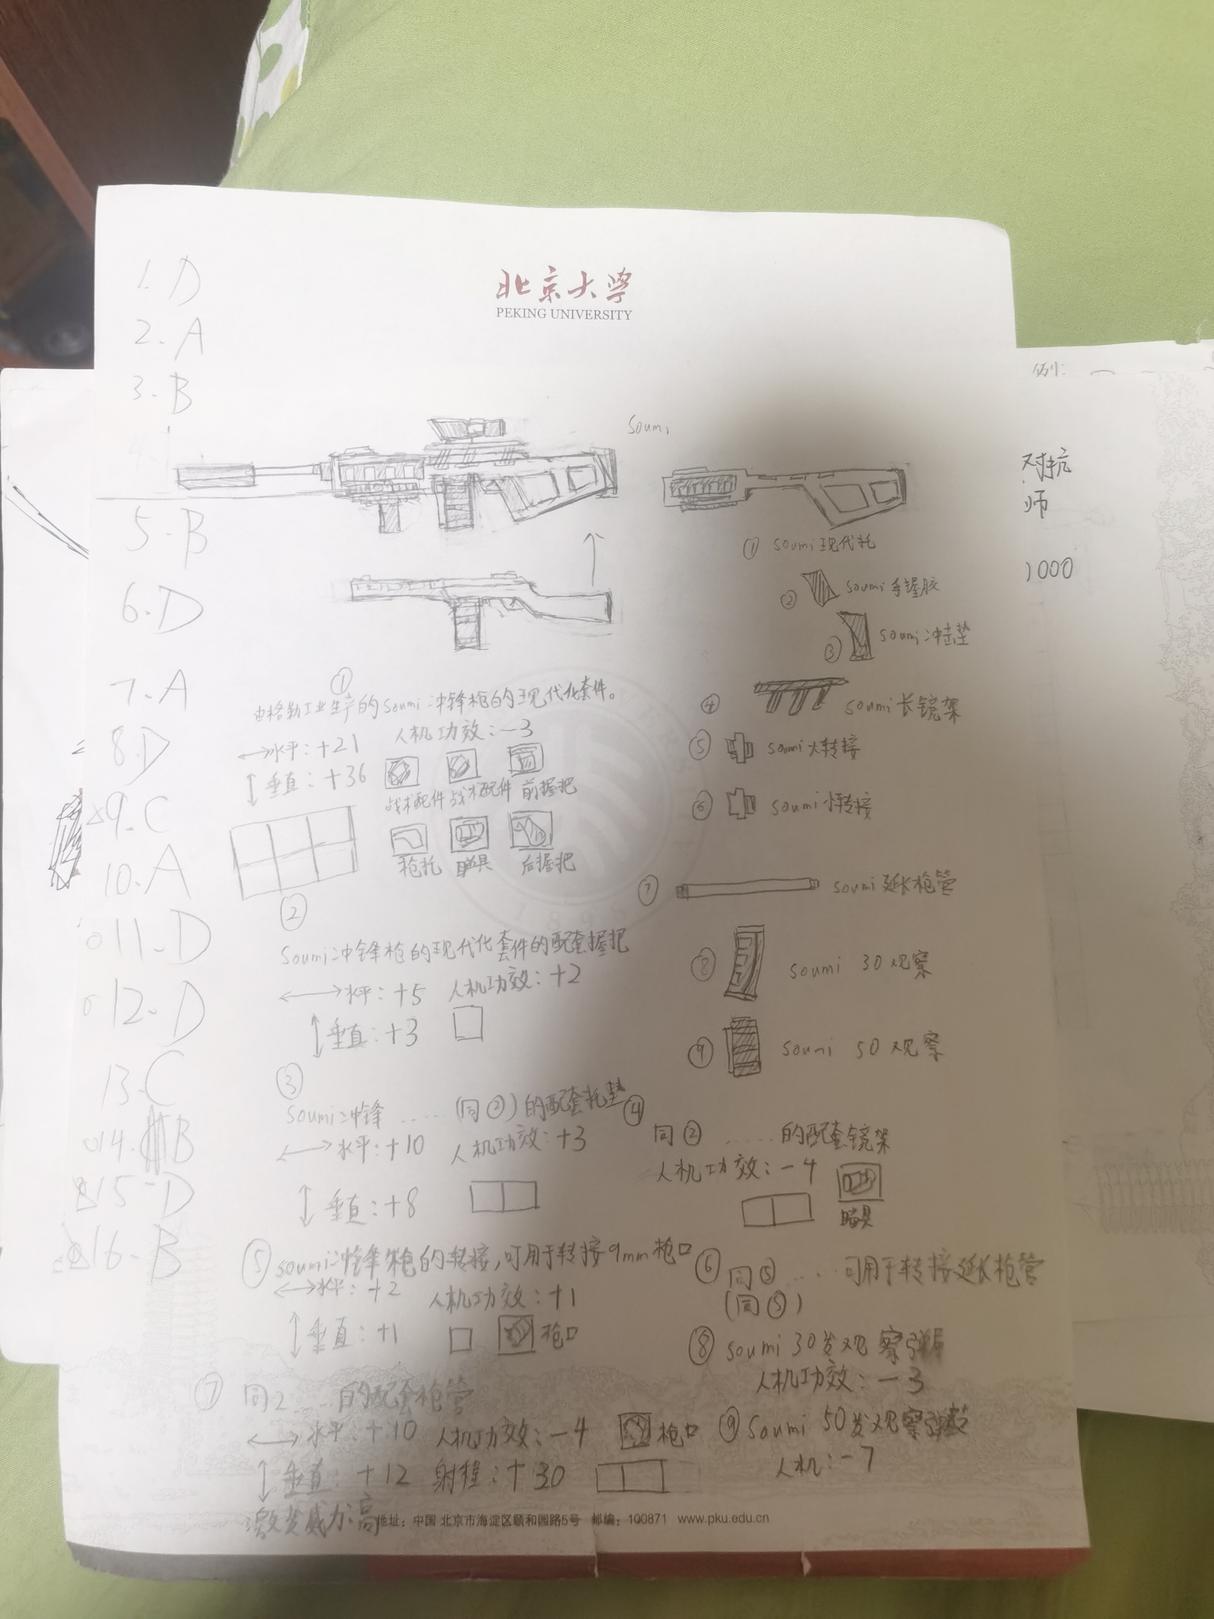 北京大学
PEKING UNIVERSITY
1. D
2. A
3. B
5. B
6. D
7. A
8. D
9. C
10. A
11. D
12. D
13. C
14. B
15. D
16. B
例:
对抗
师
1000
Soumi
① Soumi现代托
② Soumi手握胶
③ Soumi冲击垫
④ Soumi长镜架
⑤ Soumi大转接
⑥ Soumi小转接
⑦ Soumi延长枪管
⑧ Soumi 30观察
⑨ Soumi 50观察
①
由格勒工业生产的Soumi冲锋枪的现代化套件。
水平:+21 人机功效:-3
垂直:+36
战术配件 战术配件 前握把
枪托 瞄具 后握把
②
Soumi冲锋枪的现代化套件的配套握把
水平:+5 人机功效:+2
垂直:+3
③
Soumi冲锋……(同②)的配套托垫
水平:+10 人机功效:+3
垂直:+8
④
同②……的配套镜架
人机功效:-4
瞄具
⑤ Soumi冲锋枪的转接,可用于转接9mm枪口
水平:+2 人机功效:+1
垂直:+1 枪口
⑥ 同⑤……可用于转接延长枪管
(同⑤)
⑦ 同2……的配套枪管
水平:+10 人机功效:-4 枪口
垂直:+12 射程:+30
激发威力高
⑧ Soumi 30发观察弹匣
人机功效:-3
⑨ Soumi 50发观察弹鼓
人机:-7
地址:中国 北京市海淀区颐和园路5号 邮编:100871 www.pku.edu.cn